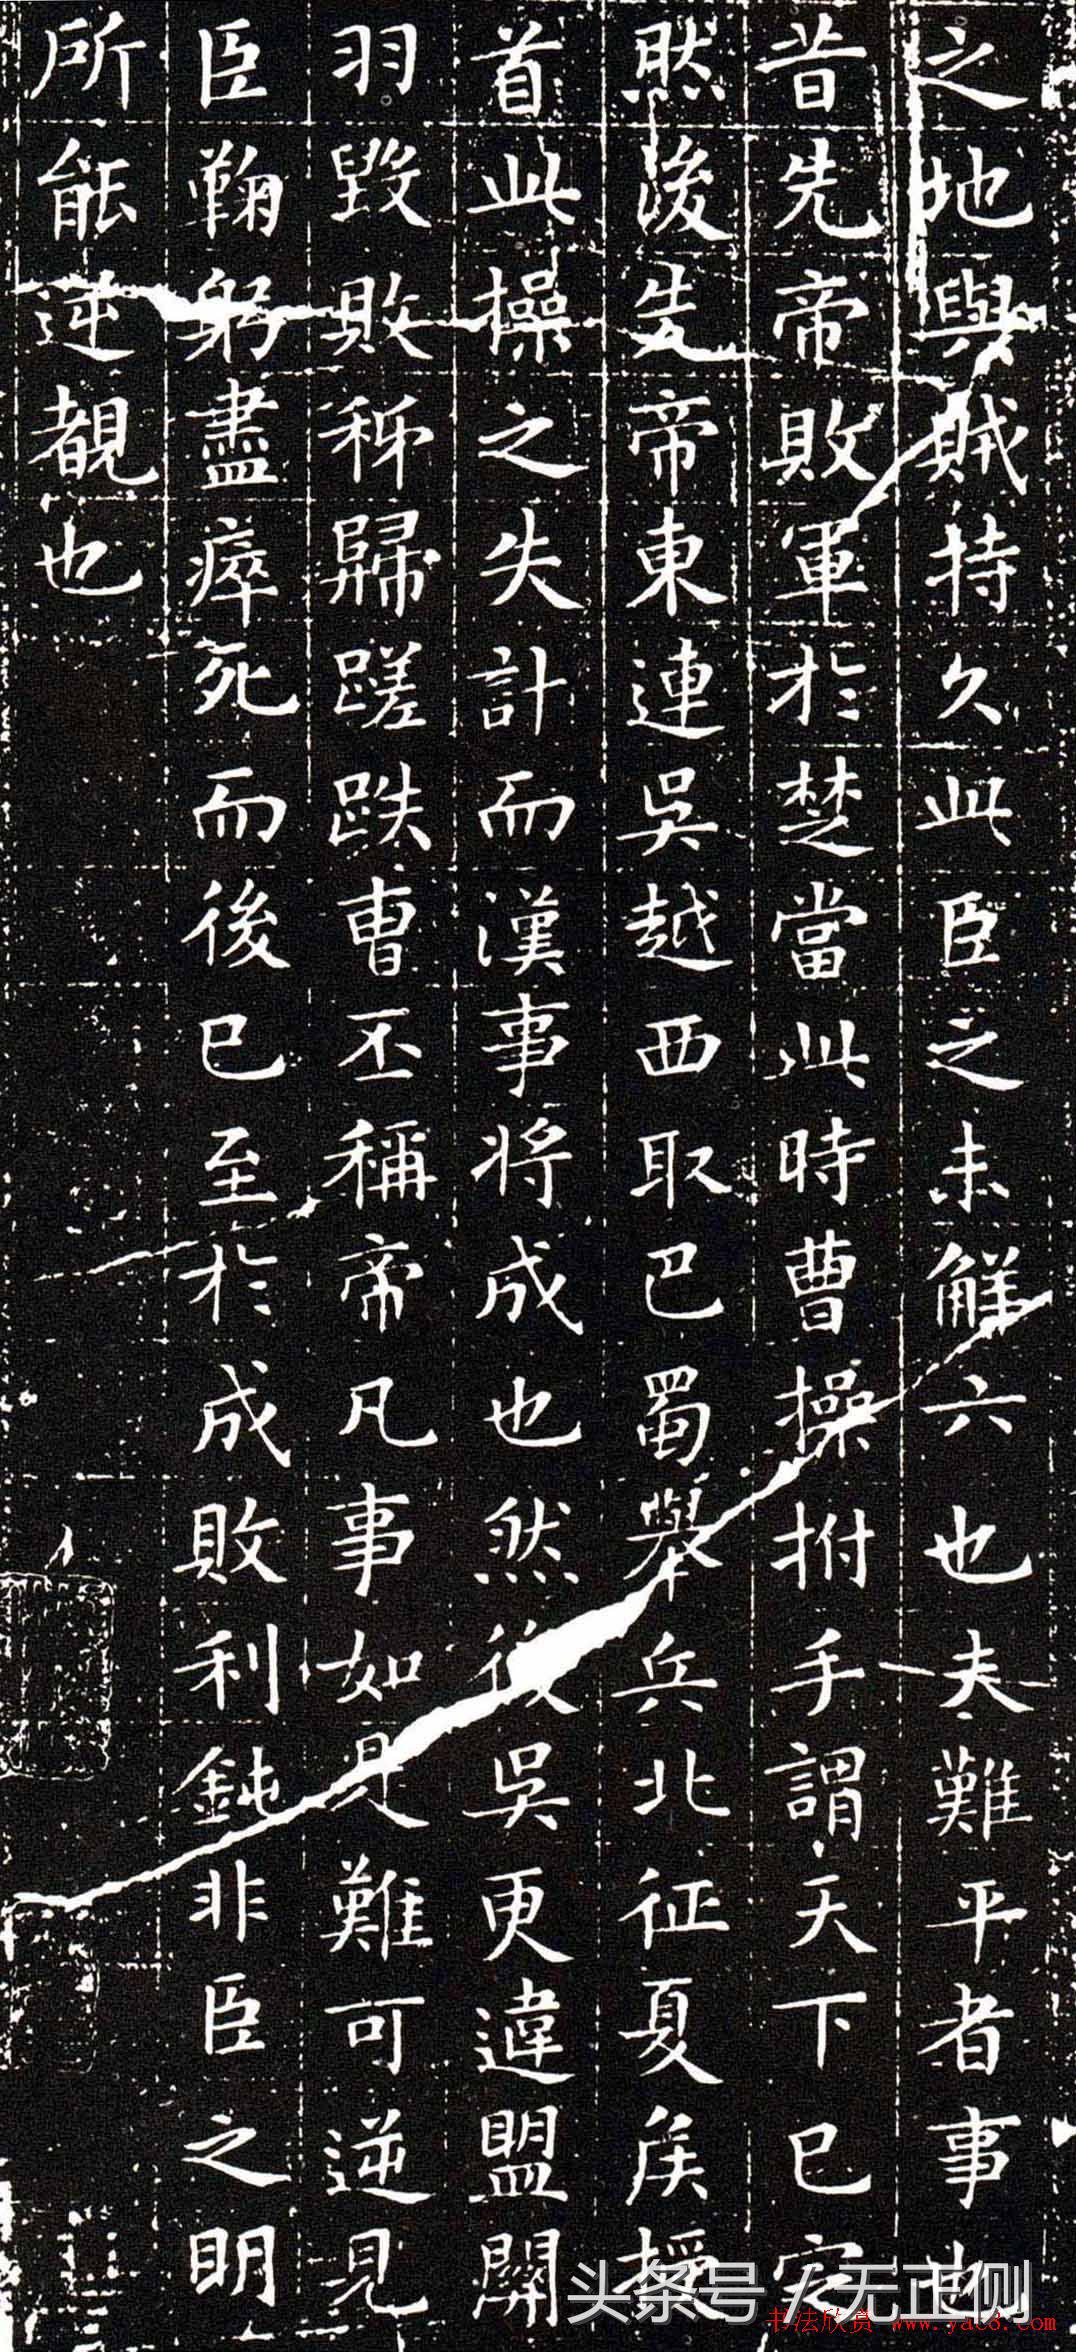 之地與賊持久此臣之未解六也夫難平者事也
昔先帝敗軍於楚當此時曹操拊手謂天下已定
然後先帝東連吳越西取巴蜀舉兵北征夏侯授
首此操之失計而漢事將成也然後吳更違盟關
羽毀敗秭歸蹉跌曹丕稱帝凡事如是難可逆見
臣鞠躬盡瘁死而後已至於成敗利鈍非臣之明
所能逆覩也
头条号 / 无正侧
书法欣赏 www.yac8.com